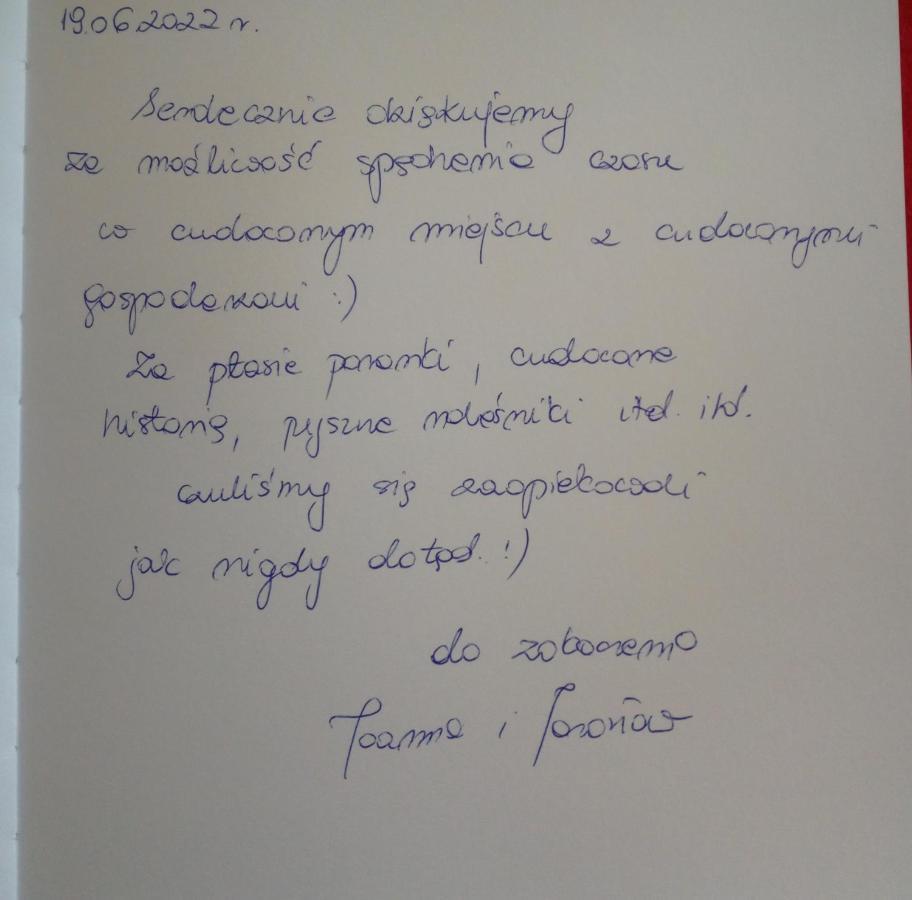 19.06.2022 r.
Serdecznie dziękujemy
za możliwość spędzenia czasu
w cudownym miejscu z cudownymi
gospodarzami :)
Za ptasie poranki, cudowne
historię, pyszne naleśniki itd. itd.
czuliśmy się zaopiekowani
jak nigdy dotąd. :)
do zobaczenia
Joanna i Jarosław